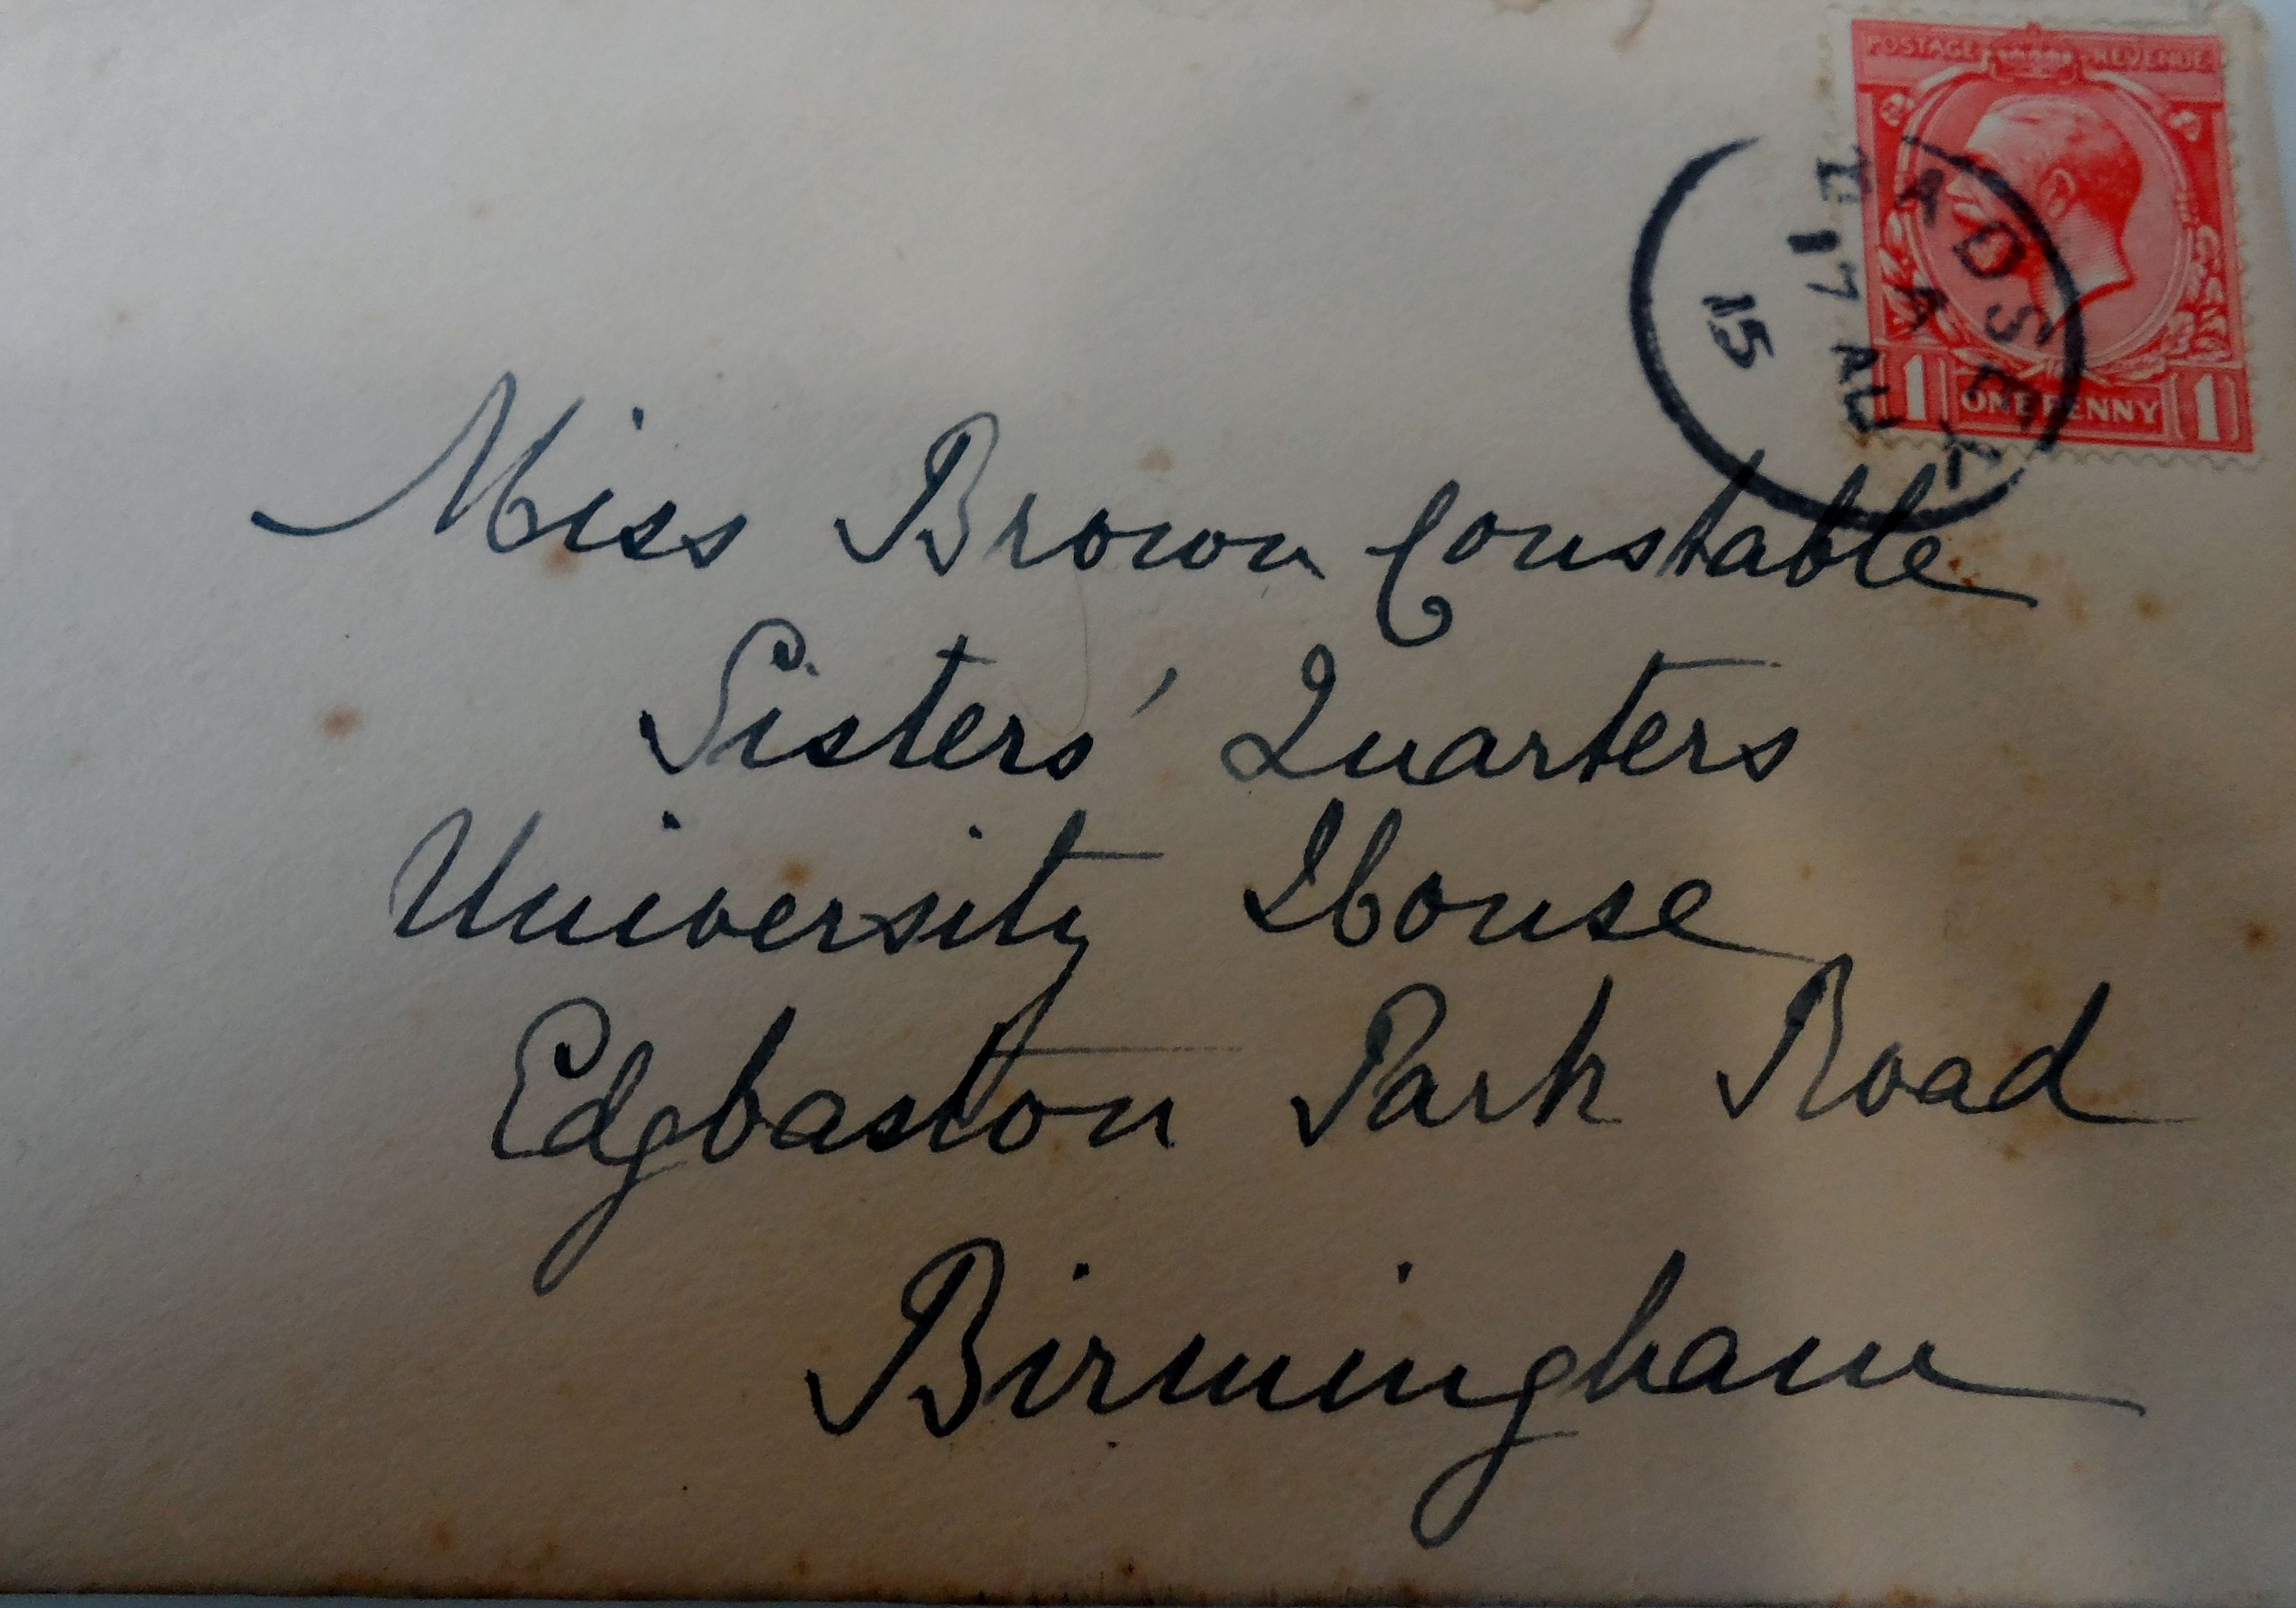 POSTAGE REVENUE
ADSEY
A
17 AU
15
1 ONE PENNY 1
Miss Brown Constable
Sisters' Quarters
University House
Edgbaston Park Road
Birmingham